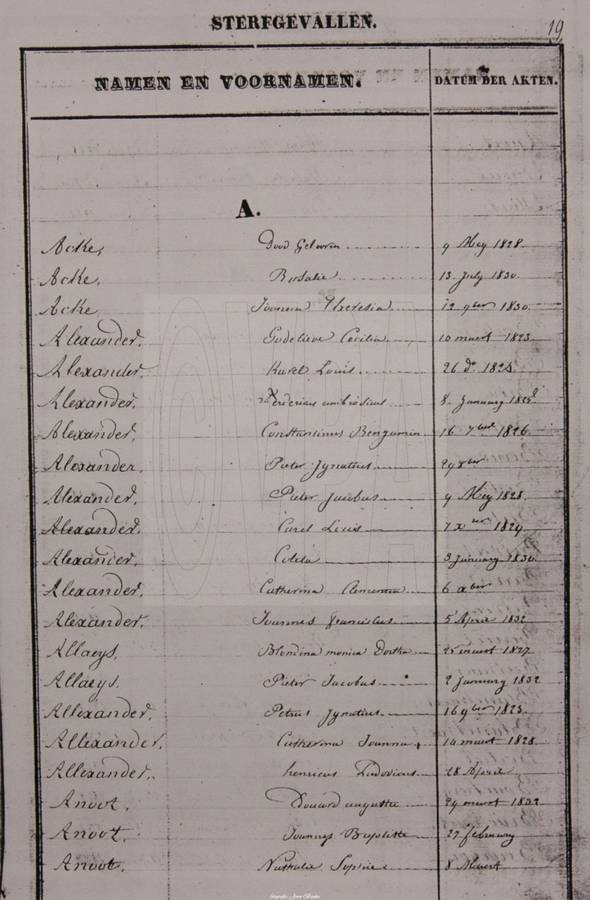 STERFGEVALLEN.
19
NAMEN EN VOORNAMEN. DATUM DER AKTEN.
A.
Acke, Dood Geboren 9 Mey 1828.
Acke, Rosalie 13 July 1830.
Acke Joanna Theresia 12 9ber 1830.
Alexander. Godelieve Cecilia 10 maart 1823
Alexander. Karel Louis 26 do 1825
Alexander. ambrosius 8 January
Alexander. Constantinus Benjamin 16 7ber 1826
Alexander. Pieter Jgnatius 29 8ber
Alexander. Pieter Jacobus 9 Mey 1828
Alexander. Carel Louis 7 xber 1829
Alexander. Coleta 3 January 1830
Alexander. Catherina Clementia 6 xber
Alexander. Joannes franciscus 5 April 1832
Allaeys. Blondina monica 25 maart 1827
Allaeys. Pieter Jacobus 2 January 1832
Allexander. Petrus Jgnatius 16 9ber 1823
Allexander. Catherina Joanna 14 maart 1828
Allexander. henricus Ludovicus 28 April
Anoot. Edouard auguste 24 maart 1832
Anoot. Joannes Baptiste 27 february
Anoot. Nathalie Sophie 8 Maert